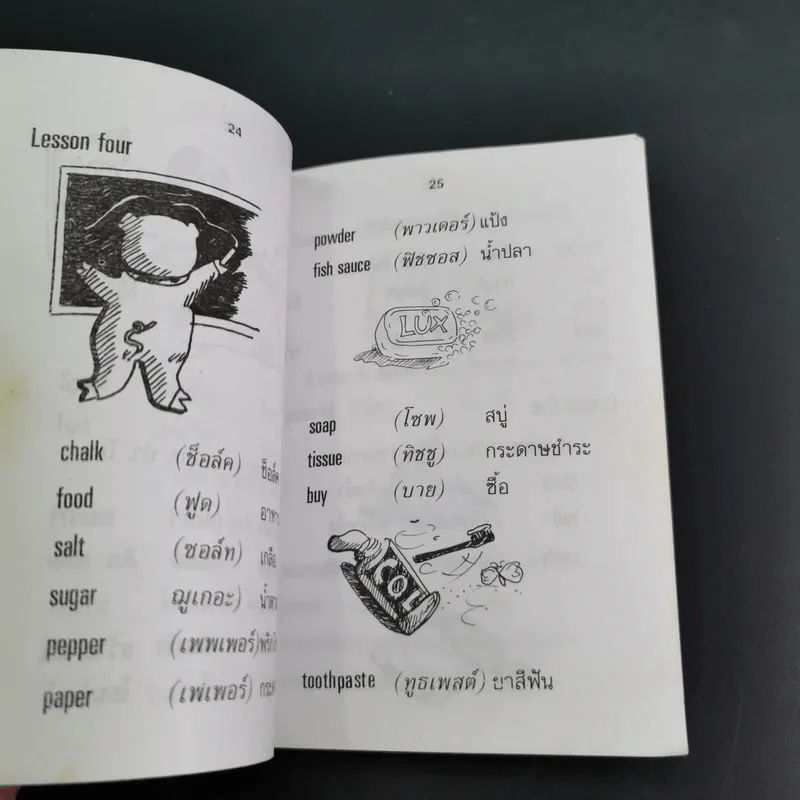 24
Lesson four
chalk (ช็อล์ค) ช็อล์ค
food (ฟูด)
salt (ซอล์ท) เกลือ
sugar ฌูเกอะ)
pepper (เพพเพอร์)
paper (เพ่เพอร์)
25
powder (พาวเดอร์) แป้ง
fish sauce (ฟิชซอส) น้ำปลา
LUX
soap (โซพ) สบู่
tissue (ทิชชู) กระดาษชำระ
buy (บาย) ซื้อ
COL
toothpaste (ทูธเพสต์) ยาสีฟัน